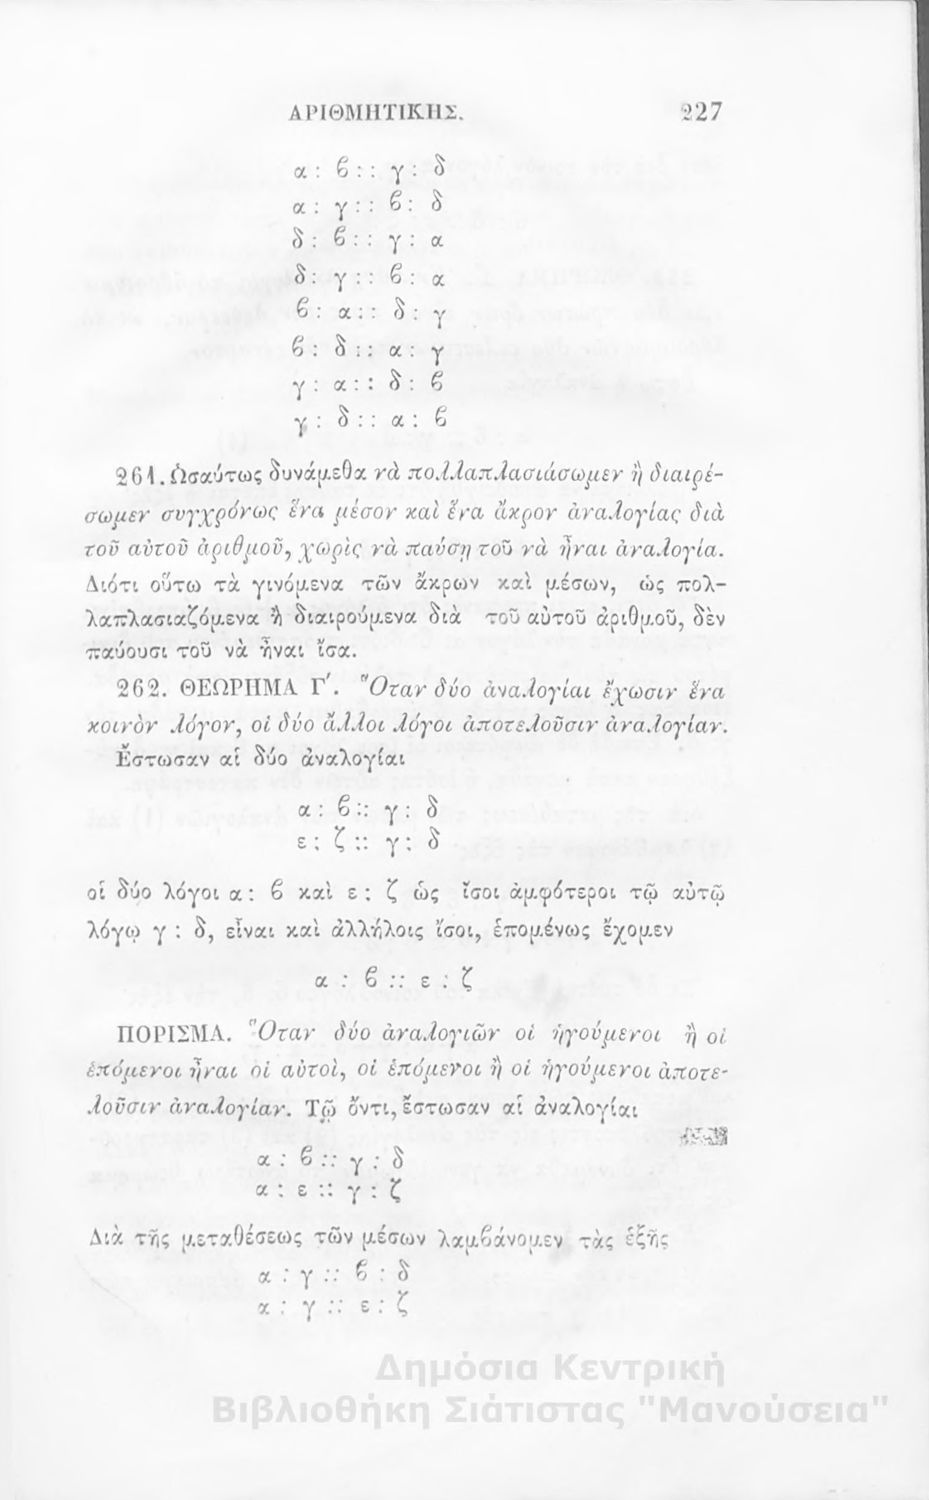 ΑΡΙΘΜΗΤΙΚΗΣ. 227
α : ϐ : : γ : δ
α : γ : : ϐ : δ
δ : ϐ : : γ : α
δ : γ : : ϐ : α
ϐ : α : : δ : γ
ϐ : δ : : α : γ
γ : α : : δ : ϐ
γ : δ : : α : ϐ
261. Ὡσαύτως δυνάμεθα νὰ πολλαπλασιάσωμεν ἢ διαιρέ-
σωμεν συγχρόνως ἕνα μέσον καὶ ἕνα ἄκρον ἀναλογίας διὰ
τοῦ αὐτοῦ ἀριθμοῦ, χωρὶς νὰ παύσῃ τοῦ νὰ ἦναι ἀναλογία.
Διότι οὕτω τὰ γινόμενα τῶν ἄκρων καὶ μέσων, ὡς πολ-
λαπλασιαζόμενα ἢ διαιρούμενα διὰ τοῦ αὐτοῦ ἀριθμοῦ, δὲν
παύουσι τοῦ νὰ ἦναι ἴσα.
262. ΘΕΩΡΗΜΑ Γ΄. Ὅταν δύο ἀναλογίαι ἔχωσιν ἕνα
κοινὸν λόγον, οἱ δύο ἄλλοι λόγοι ἀποτελοῦσιν ἀναλογίαν.
Ἔστωσαν αἱ δύο ἀναλογίαι
α : ϐ :: γ : δ
ε : ζ :: γ : δ
οἱ δύο λόγοι α : ϐ καὶ ε : ζ ὡς ἴσοι ἀμφότεροι τῷ αὐτῷ
λόγῳ γ : δ, εἶναι καὶ ἀλλήλοις ἴσοι, ἑπομένως ἔχομεν
α : ϐ :: ε : ζ
ΠΟΡΙΣΜΑ. Ὅταν δύο ἀναλογιῶν οἱ ἡγούμενοι ἢ οἱ
ἑπόμενοι ἦναι οἱ αὐτοὶ, οἱ ἑπόμενοι ἢ οἱ ἡγούμενοι ἀποτε-
λοῦσιν ἀναλογίαν. Τῷ ὄντι, ἔστωσαν αἱ ἀναλογίαι
α : ϐ :: γ : δ
α : ε :: γ : ζ
Διὰ τῆς μεταθέσεως τῶν μέσων λαμϐάνομεν τὰς ἑξῆς
α : γ :: ϐ : δ
α : γ :: ε : ζ
Δημόσια Κεντρική
Βιβλιοθήκη Σιάτιστας "Μανούσεια"